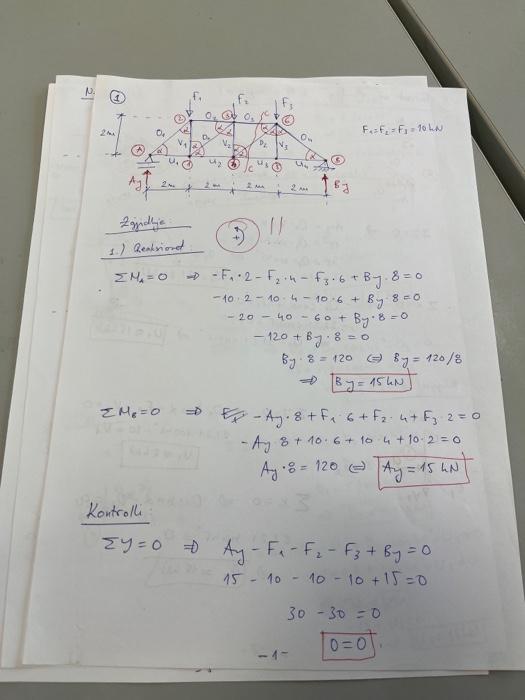 N.
1
F₁ F₂ F₃
2 O₂ 3 O₃ C 6
F₁=F₂=F₃=10kN
2m O₁ α V₁ α D₁ V₂ D₂ V₃ O₄ α
A α U₁ 1 U₂ 4 U₃ 5 U₄ B
C
Ay By
2m 2m 2m 2m
Zgjidhje:
+
1.) Reaksionet.
ΣMₐ=0 ⇒ -F₁·2-F₂·4-F₃·6+By·8=0
-10·2-10·4-10·6+By·8=0
-20-40-60+By·8=0
-120+By·8=0
By·8=120 ⇔ By=120/8
⇒ By=15kN
ΣM_B=0 ⇒ -Ay·8+F₁·6+F₂·4+F₃·2=0
-Ay·8+10·6+10·4+10·2=0
Ay·8=120 ⇔ Ay=15kN
Kontrolli:
ΣY=0 ⇒ Ay-F₁-F₂-F₃+By=0
15-10-10-10+15=0
30-30=0
0=0
-1-